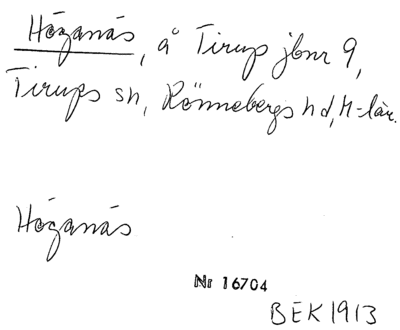 Höganäs, å Tirup jbnr 9,
Tirups sn, Rönnebergs hd, M-län.
Höganäs
Nr 16704
BEK 1913